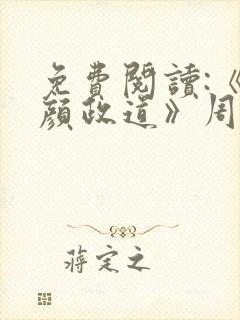 免費閱讀:《
顏政道》周
蔣定之